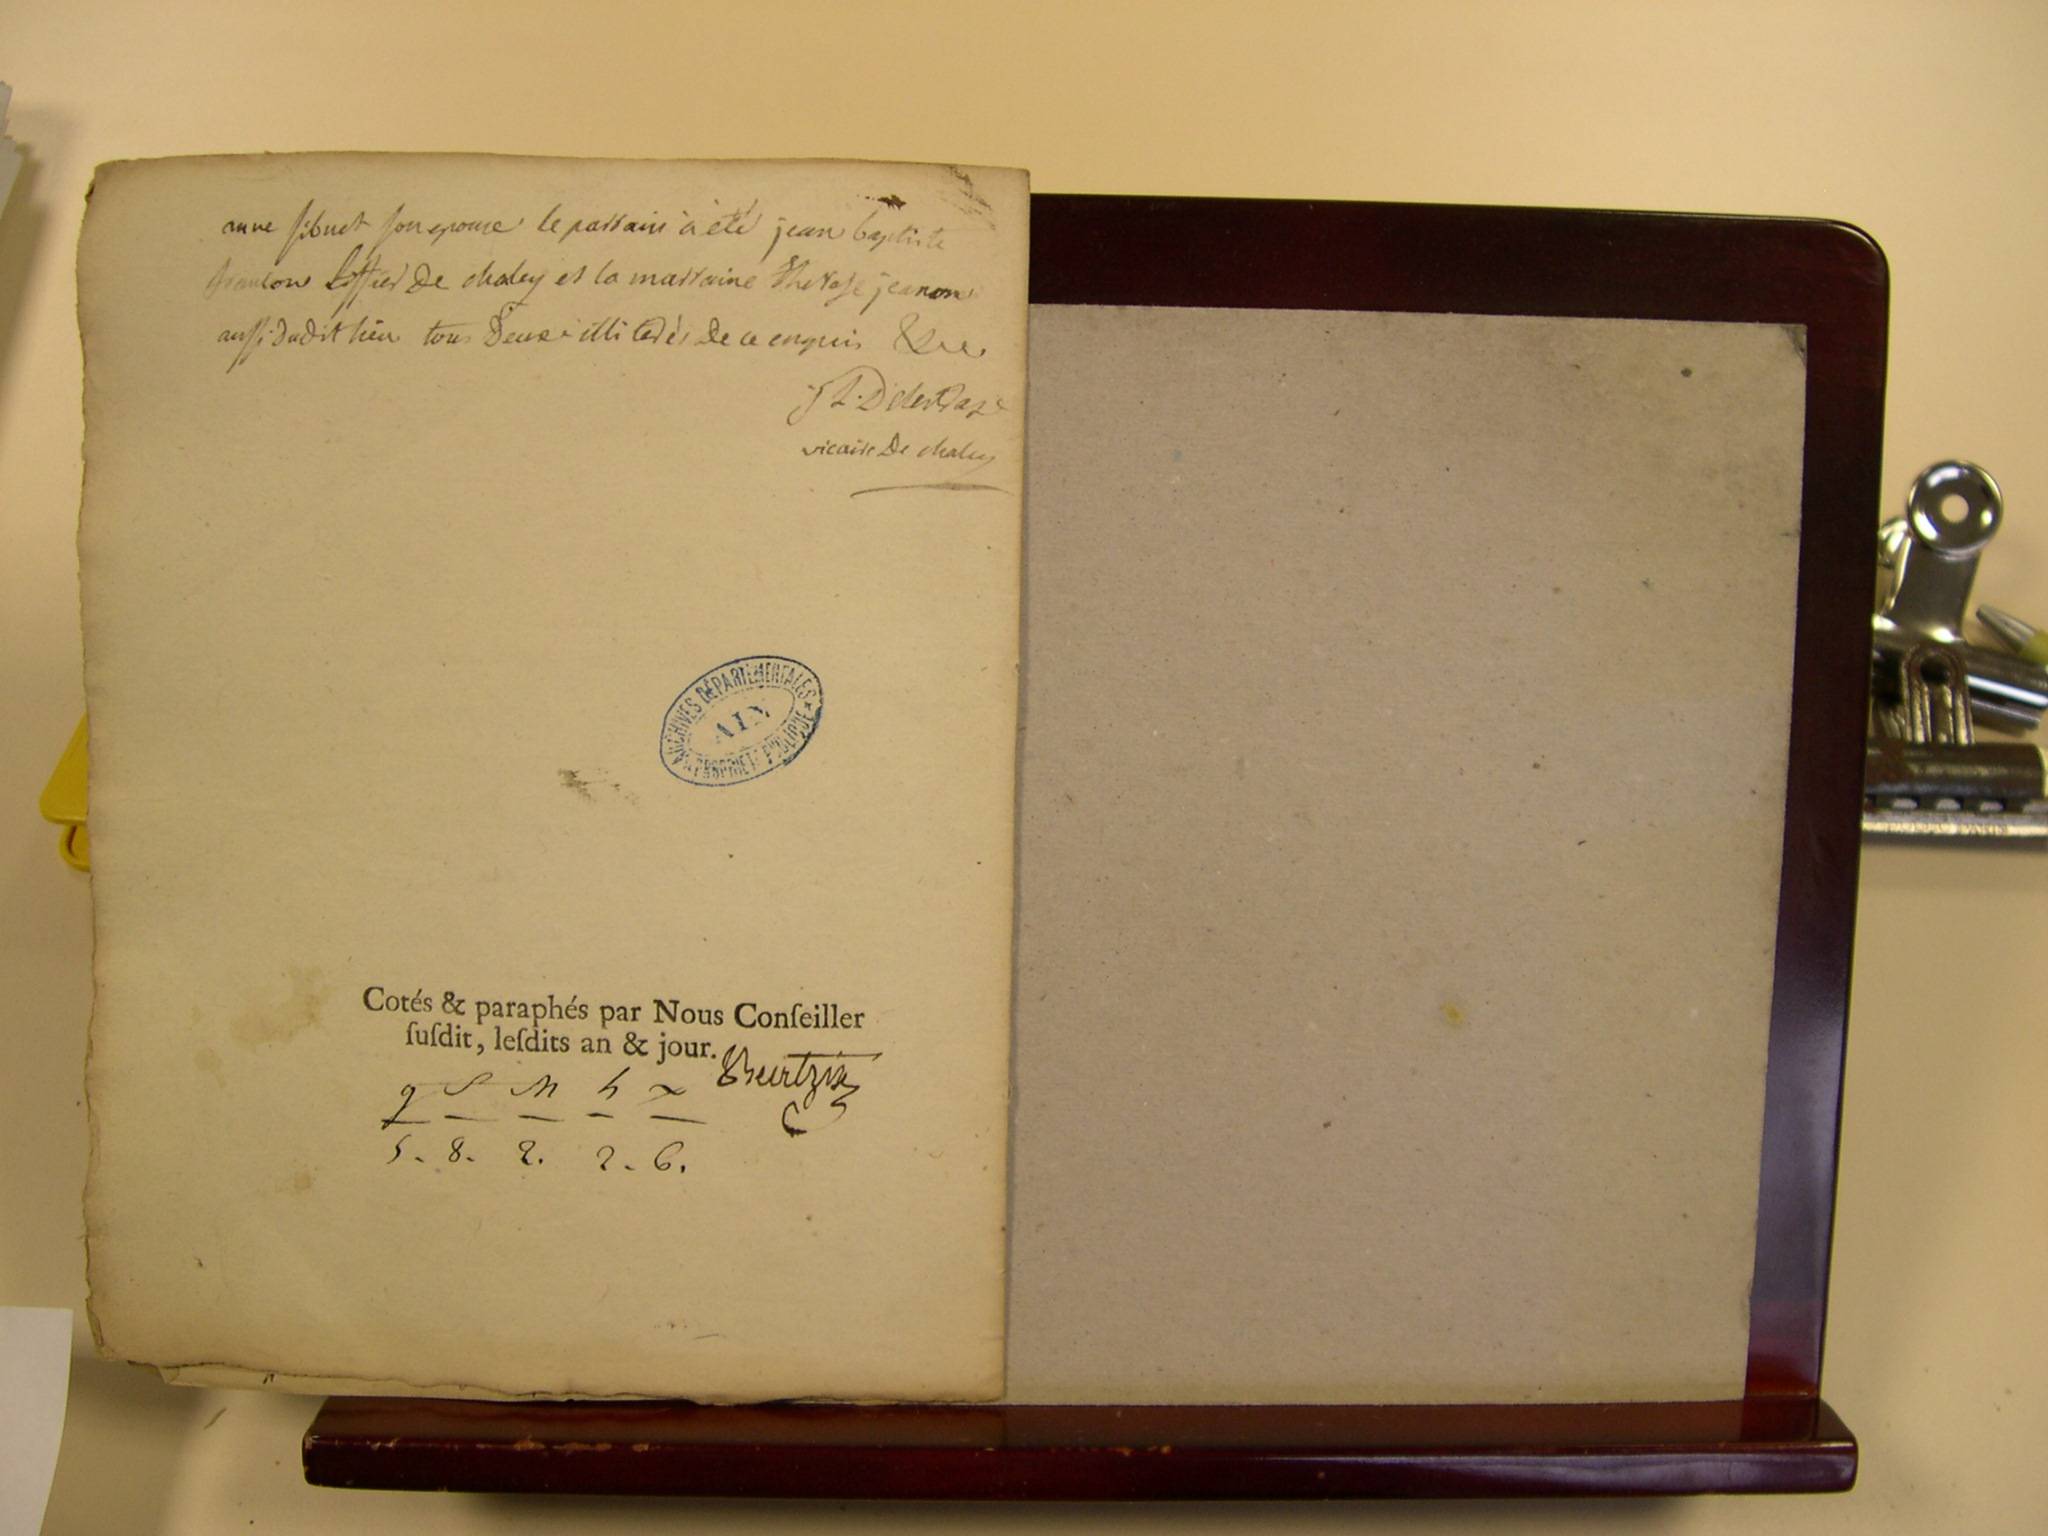 anne sibuet son epouse le parrain à été jean baptiste
De chaley et la marraine jeanton
aussi dudit lieu tous Deux illiterés De ce enquis &c
vicaire De chaley
ARCHIVES DÉPARTEMENTALES
AIN
PROPRIÉTÉ PUBLIQUE
Cotés & paraphés par Nous Conſeiller
ſuſdit, leſdits an & jour.
5. 8. 2. 2. 6.